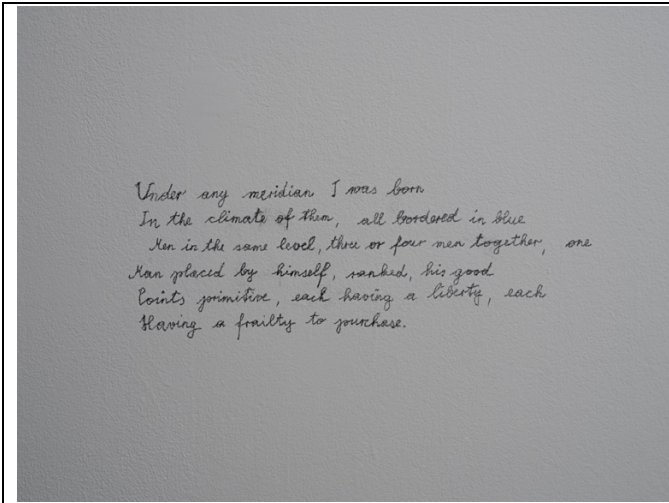 Under any meridian I was born
In the climate of them, all bordered in blue
Men in the same level, three or four men together, one
Man placed by himself, ranked, his good
Points primitive, each having a liberty, each
Having a frailty to purchase.